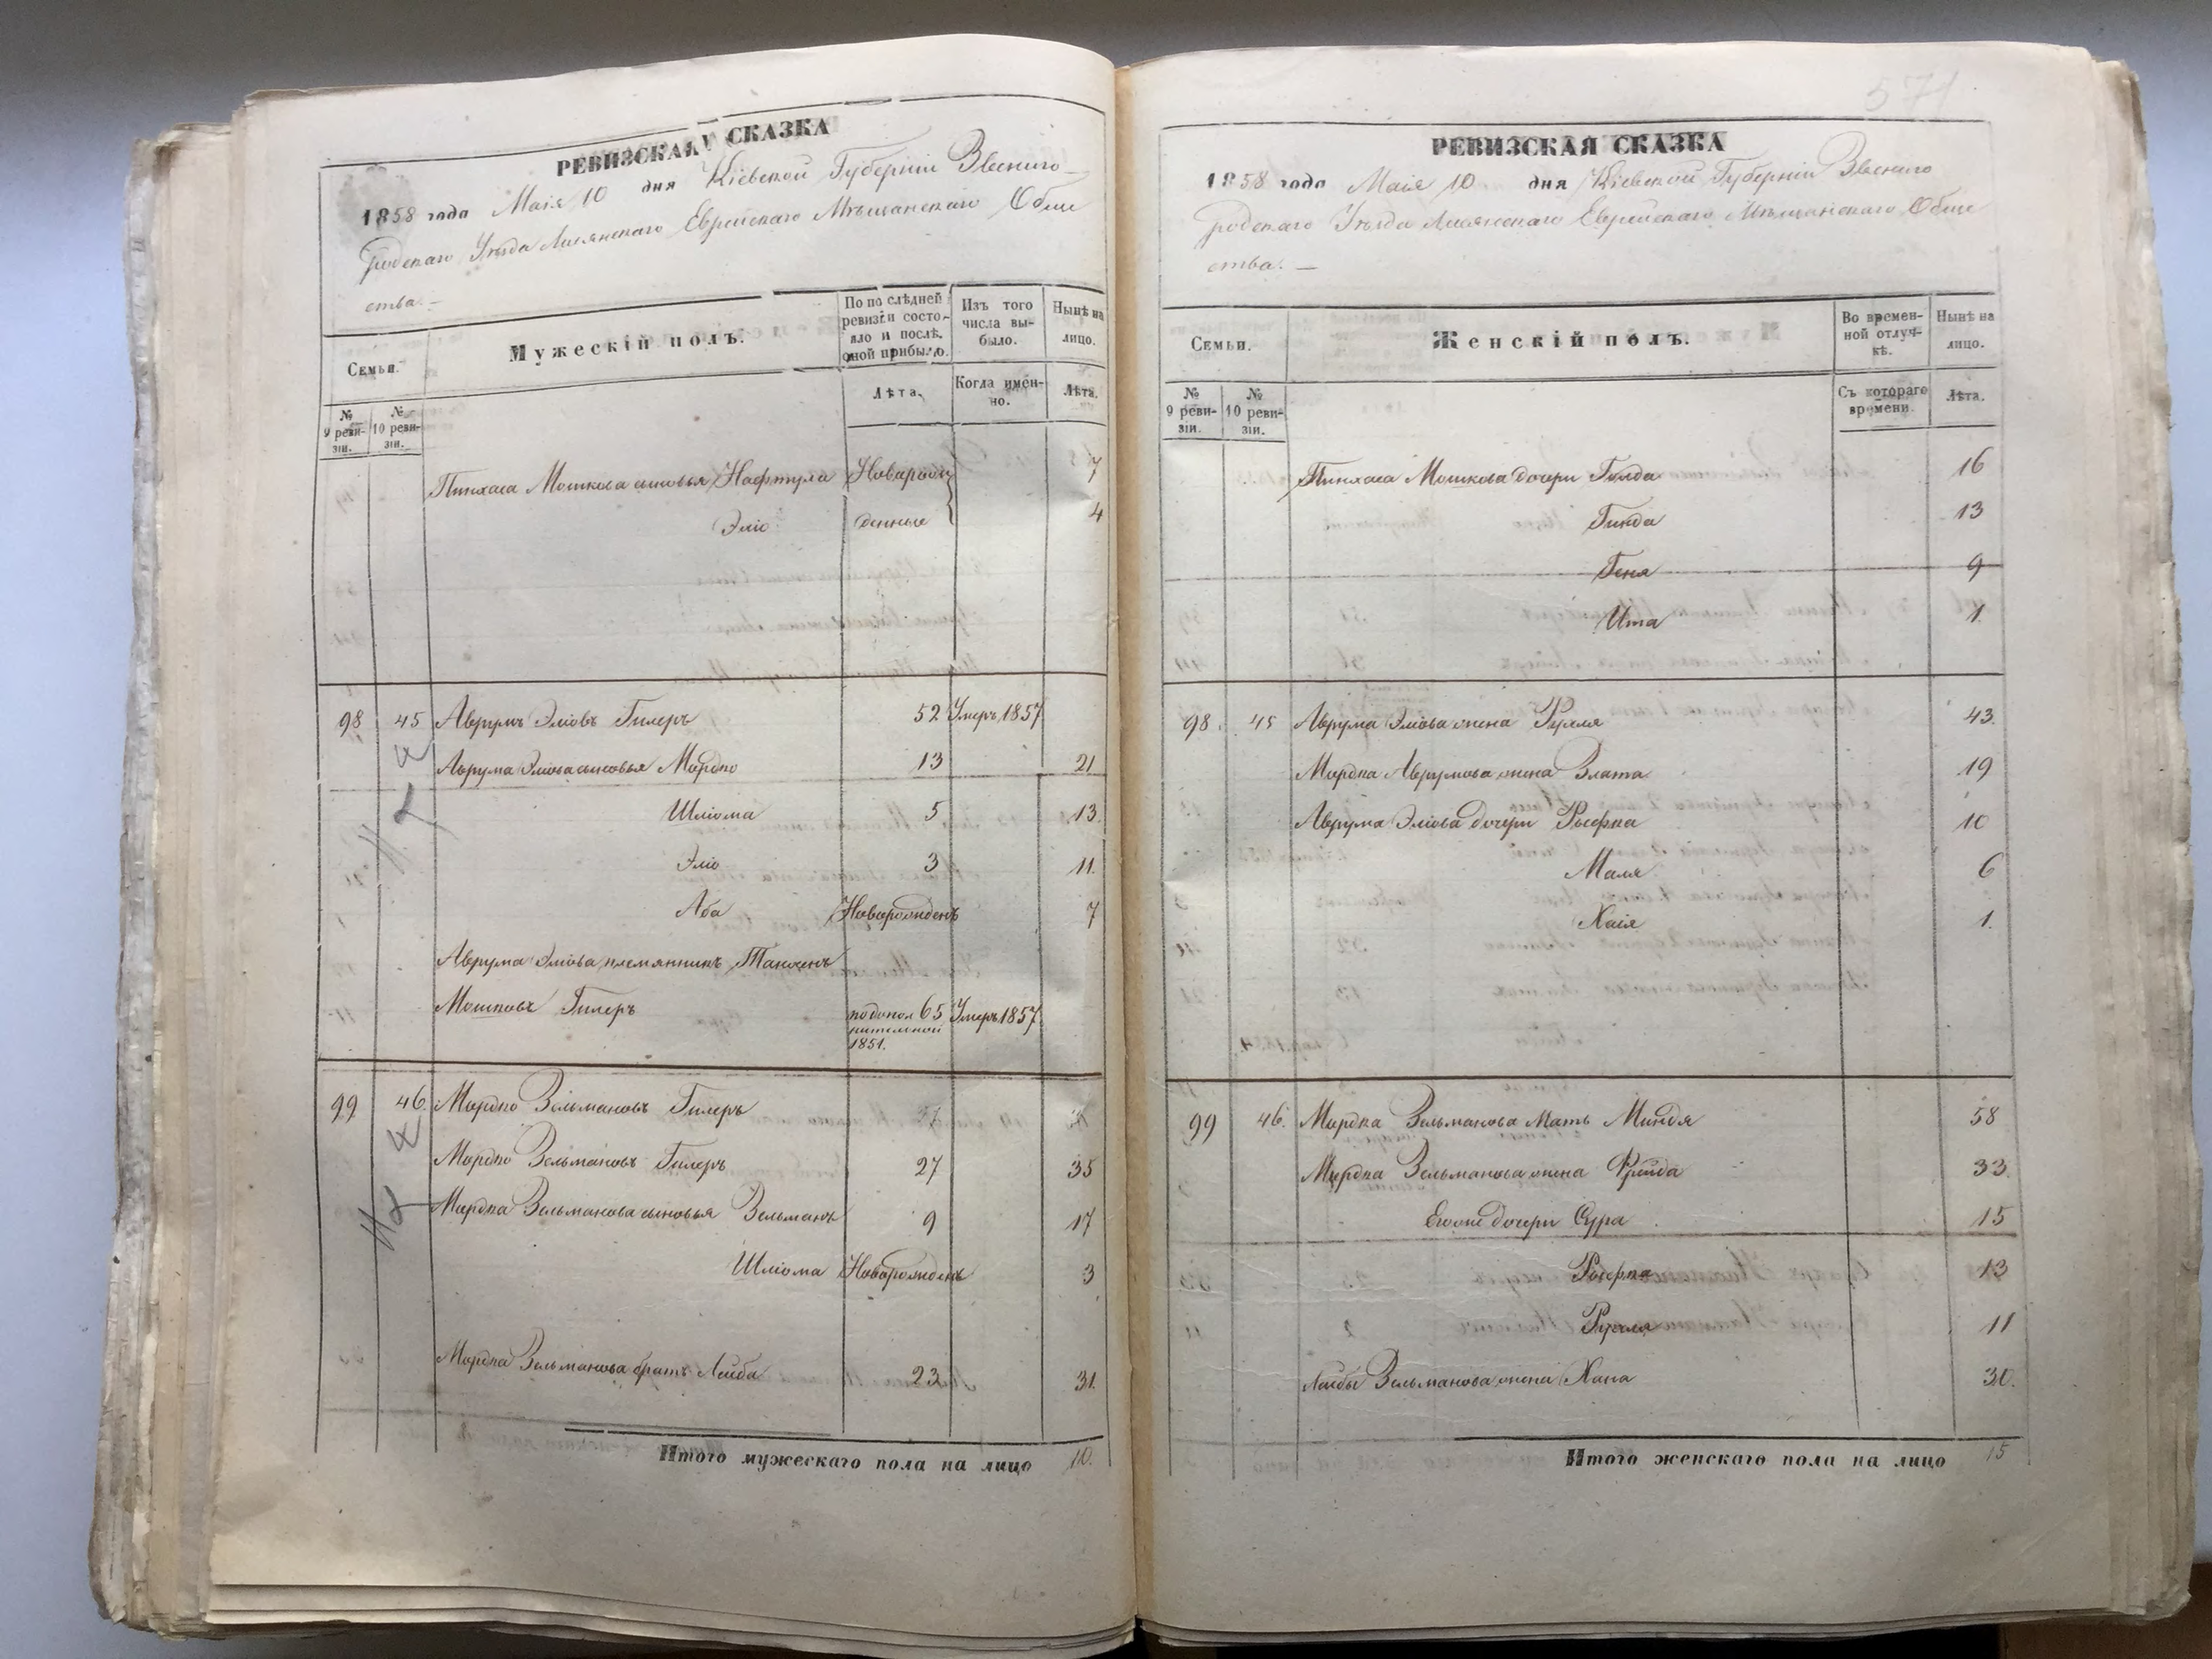 РЕВИЗСКАЯ СКАЗКА
1858 года Маія 10 дня Кіевской Губерніи Звениго-
родскаго Уѣзда Лисянскаго Еврейскаго Мѣщанскаго Обще
ства.—
Семьи.
Мужескій полъ.
По по слѣдней ревизіи состояло и послѣ оной прибыло.
Изъ того числа выбыло.
Нынѣ на лицо.
№ 9 ревизіи.
№ 10 ревизіи.
Лѣта.
Когда имен-но.
Лѣта.
Пинхаса Мошкова сыновья Нафтула Новарож 7
Эліо денные 4
98 45 Аврумъ Эліовъ Гилеръ 52 Умеръ 1857
Аврума Эліова сыновья Мордко 13 21
Шліома 5 13.
Эліо 3 11.
Аба Новорожденъ 7
Аврума Эліова племянникъ Танхенъ
Мошковъ Гилеръ по допол 65 Умеръ 1857.
нительной
1851.
99 46. Мордко Зельмановъ Гилеръ
Мордко Зельмановъ Гилеръ 27 35
Мордка Зельманова сыновья Зельманъ 9 17
Шліома Новорожденъ 3
Мордка Зельманова братъ Лейба 23 31.
Итого мужескаго пола на лицо 10.
571
РЕВИЗСКАЯ СКАЗКА
1858 года Маія 10 дня Кіевской Губерніи Звениго
родскаго Уѣзда Лисянскаго Еврейскаго Мѣщанскаго Обще
ства.—
Семьи.
Женскій полъ.
Во времен-ной отлуч-кѣ.
Нынѣ на лицо.
№ 9 реви-зіи.
№ 10 реви-зіи.
Съ котораго времени.
Лѣта.
Пинхаса Мошкова дочери Голда 16
Гинда 13
Геня 9
Ита 1.
98. 45 Аврума Эліова жена Рухля 43.
Мордка Аврумова жена Злата 19
Аврума Эліова дочери Рыфка 10
Маля 6
Хаія 1.
99 46. Мордка Зельманова Мать Миндя 58
Мордка Зельманова жена Фрейда 33.
Егоже дочери Сура 15
Рыфка 13
Рухля 11
Лейбы Зельманова жена Хана 30.
Итого женскаго пола на лицо 15